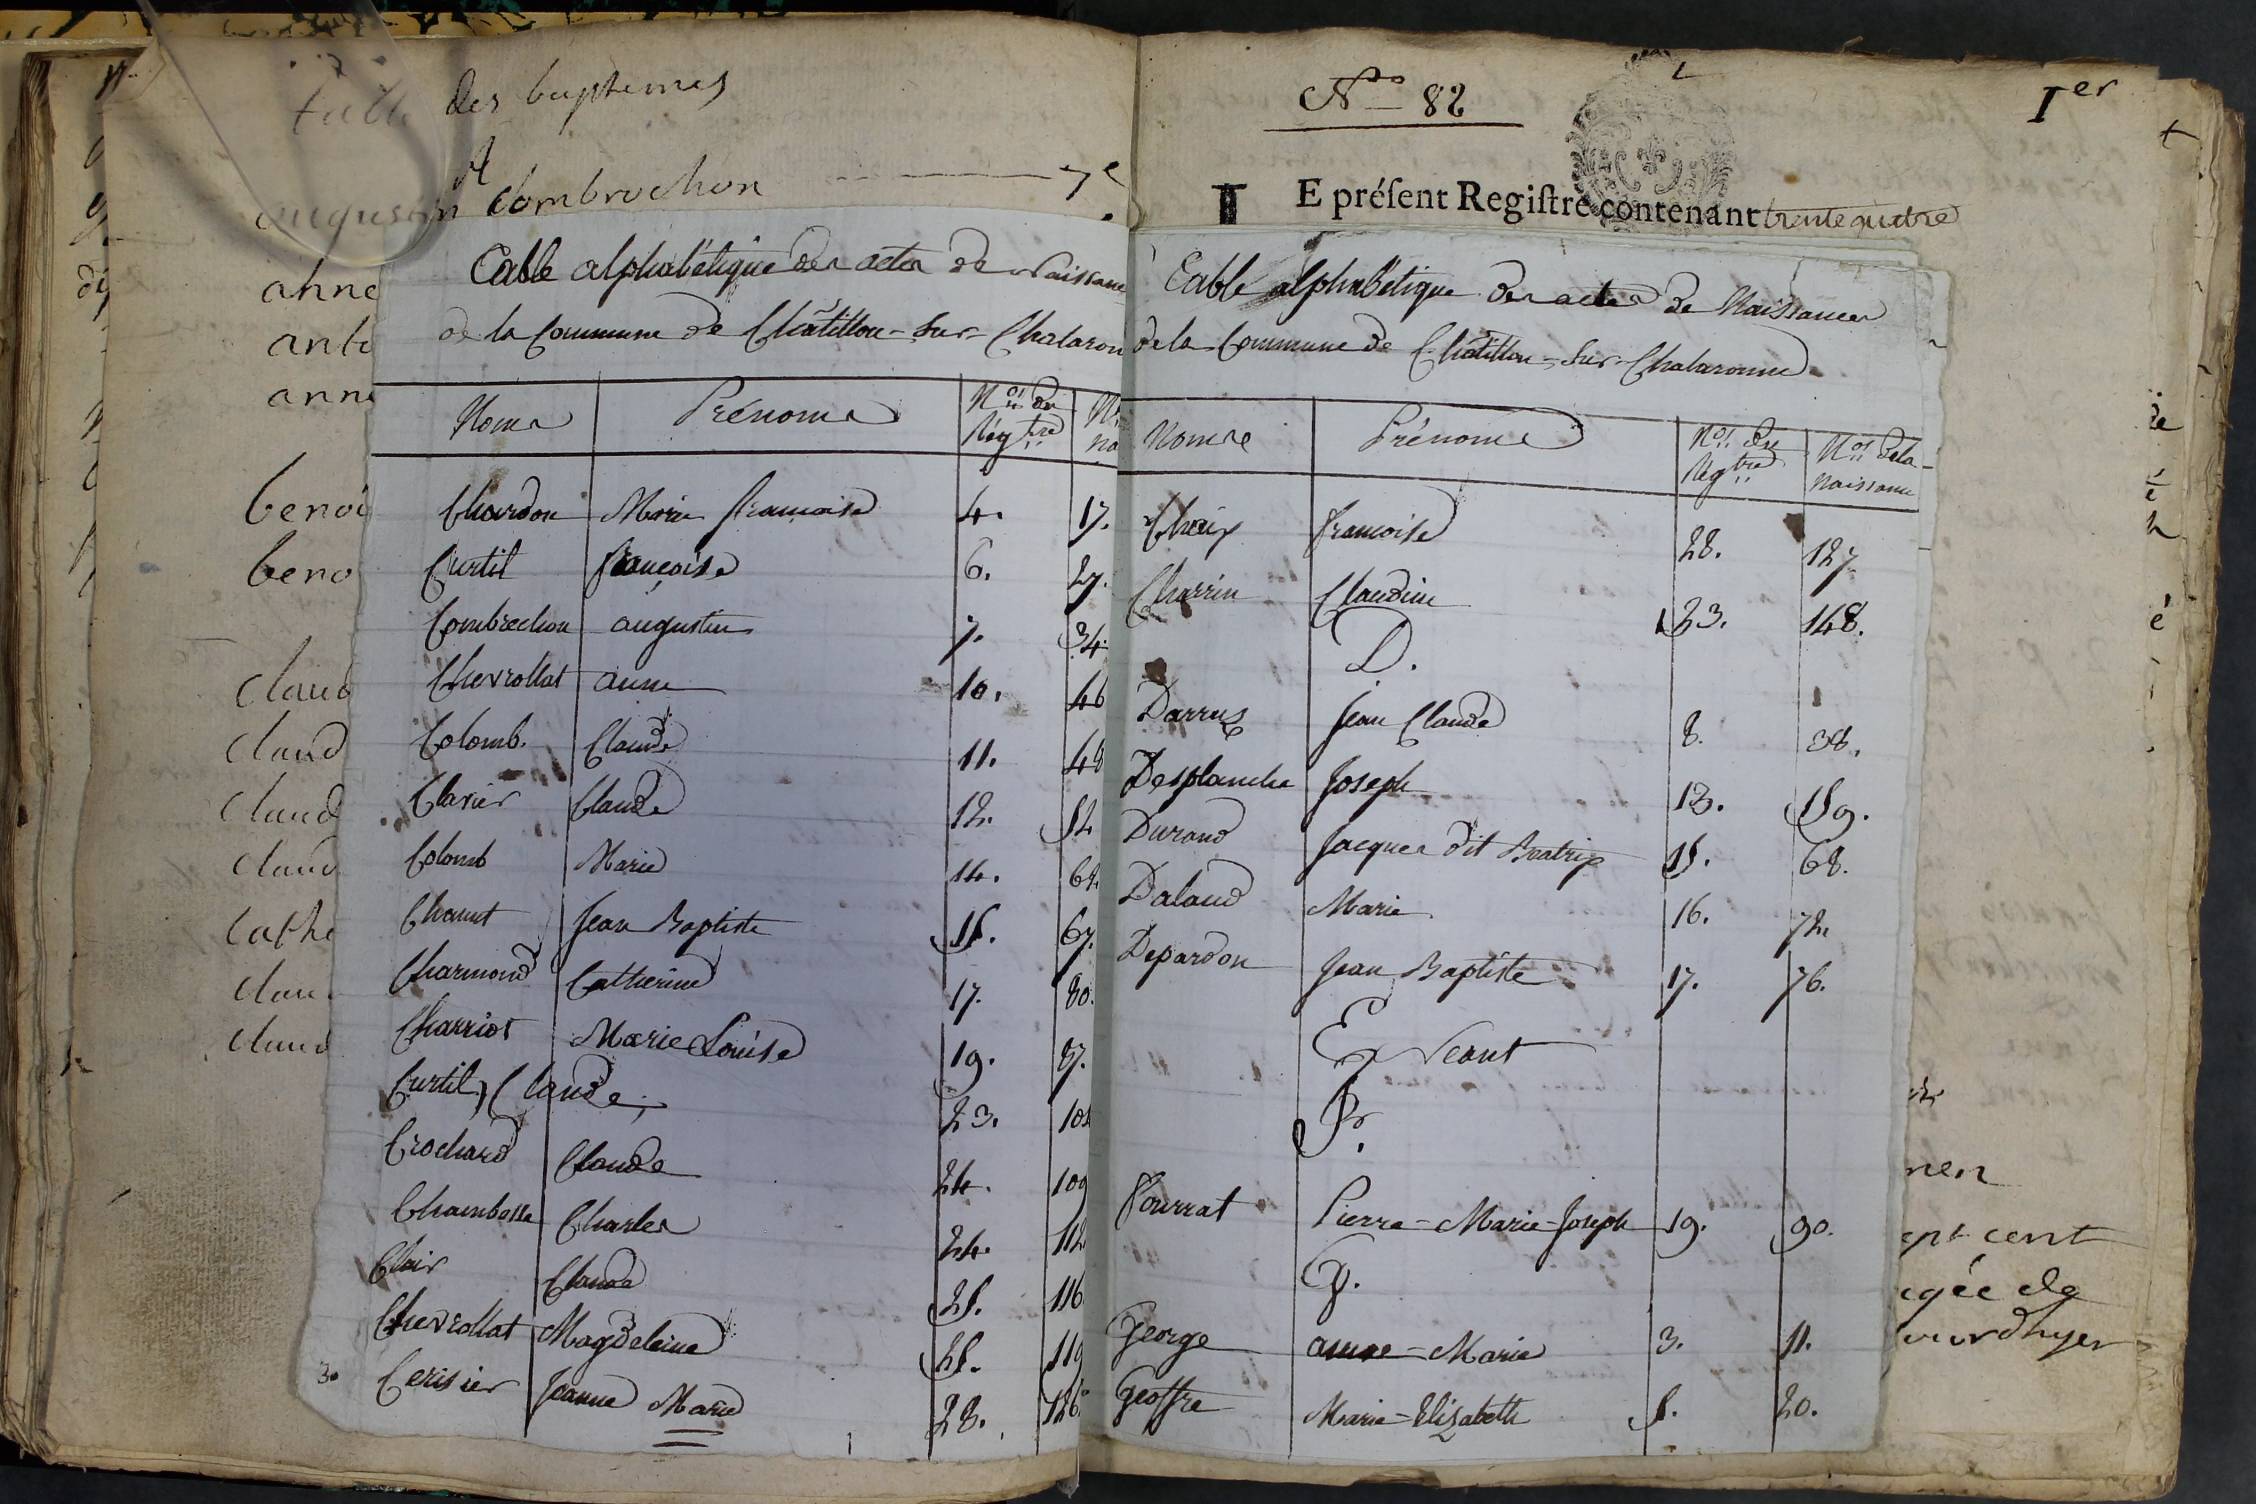 table des baptemes
A
augustin Combrochon 7e
anne
anto
anne
benoi
beno
claud
claud
claud
claud
cathe
clau
claud
Table alphabétique des actes de Naissance
de la Commune de Châtillon-sur-Chalaron
Noms Prénoms Nos. du Régtre
Chardon Marie francoise 4. 17.
Curtil francoise 6. 27.
Combrechon augustin 7. 34
Chevrollat anne 10. 46
Colomb. Claude 11. 48
Clavier Claude 12. 52
Colomb Marie 14. 62
Chanut Jean Baptiste 15. 67.
Charmond Catherine 17. 80.
Charriot Marie Louise 19. 87.
Curtil, Claude, 23. 105
Crochard Claude 24. 109
Chambosse Charles 24. 112
Clair Claude 25. 116
Chevrollat Magdeleine 25. 119
3. Cerisier Jeanne Marie 28. 126.
Nos 82
Ier
E préſent Regiſtre contenant trente quatre
Table alphabétique des actes de Naissances
de la Commune de Châtillon-sur-Chalaronne
Noms Prénoms Nos. du Régtre Nos. de la naissance
Chaix francoise 28. 127
Charrin Claudine 33. 148.
D.
Darrus Jean Claude 8. 38.
Desplanche Joseph 13. 59.
Durand Jacques dit Beatrix 15. 68.
Daland Marie 16. 72.
Depardon Jean Baptiste 17. 76.
E Neant
F.
Fourrat Pierre-Marie-Joseph 19. 90.
G.
George anne-Marie 3. 11.
Geoffre Marie-Elizabeth 5. 20.
nen
ept cent
gée de